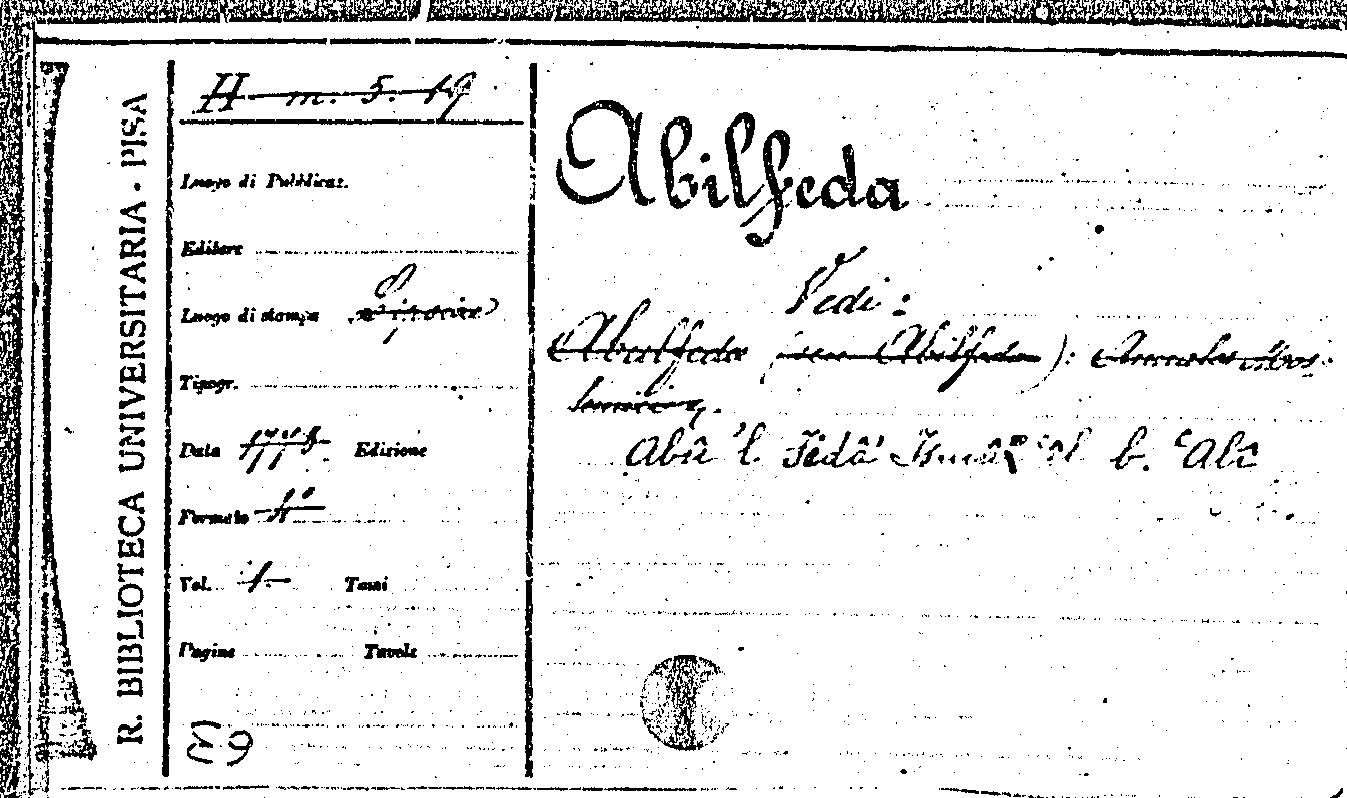 R. BIBLIOTECA UNIVERSITARIA - PISA
H m. 5. 19
Luogo di Pubblicaz.
Editore
Luogo di stampa Lipsiae
Tipogr.
Data Edizione
Formato 4°
Vol. 1. Tomi
Pagine Tavole
Abilfeda
Vedi:
Abulfeda (seu Abilfeda): Annales Mos-
lemici.
Abū 'l Fidā' Ismā'īl b. 'Alī